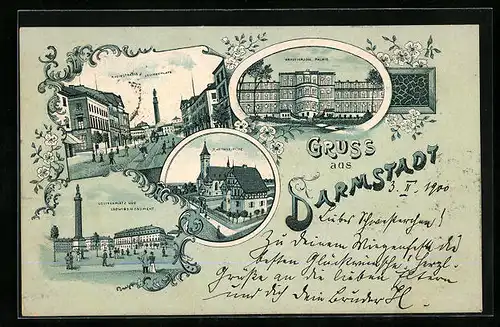 RHEINSTRASSE & LOUISENPLATZ
GROSSHERZOGL. PALAIS
GRUSS
aus
DARMSTADT
LOUISENPLATZ UND
LUDWIGSMONUMENT
3. II. 1900
Lieber Schwesterchen!
Zu Deinem Wiegenfeste die
besten Glückwünsche, herzl.
Grüße an die lieben Eltern
und dich dein Bruder